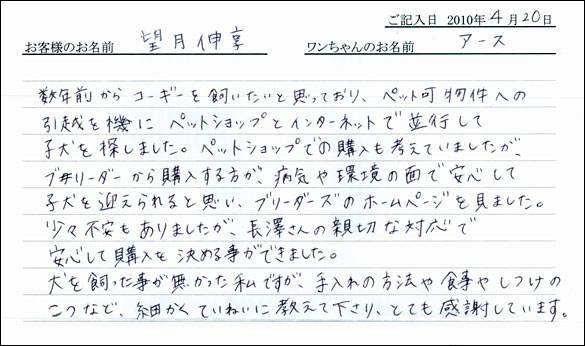 ご記入日 2010年4月20日
お客様のお名前 望月伸享 ワンちゃんのお名前 アース
数年前からコーギーを飼いたいと思っており、ペット可物件への
引越を機にペットショップとインターネットで並行して
子犬を探しました。ペットショップでの購入も考えていましたが、
ブリーダーから購入する方が、病気や環境の面で安心して
子犬を迎えられると思い、ブリーダーズのホームページを見ました。
少々不安もありましたが、長澤さんの親切な対応で
安心して購入を決める事ができました。
犬を飼った事が無かった私ですが、手入れの方法や食事やしつけの
こつなど、細かくていねいに教えて下さり、とても感謝しています。